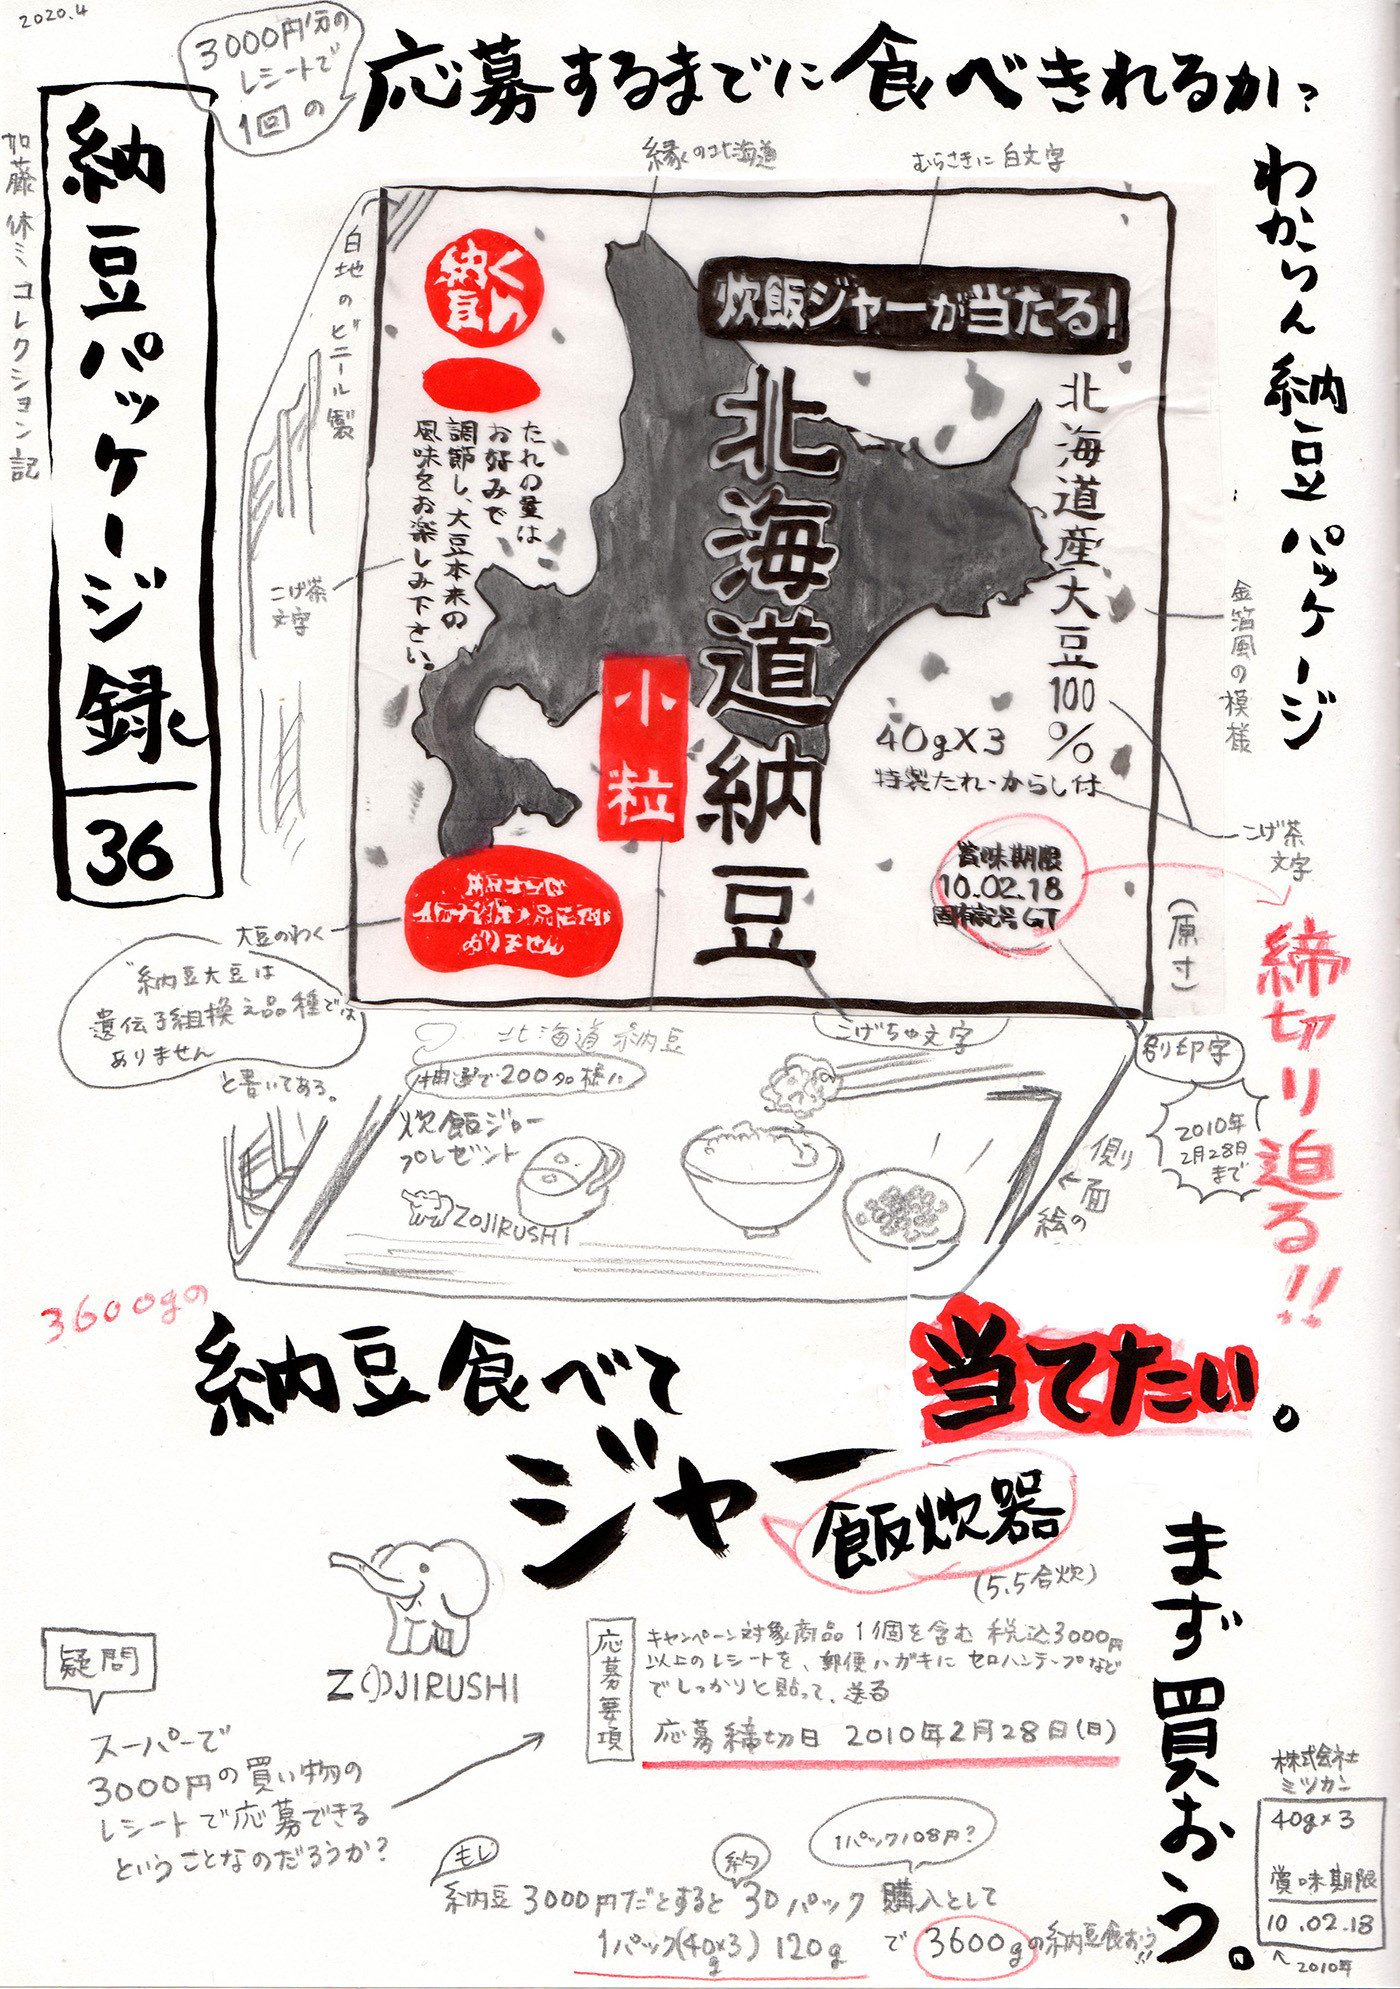 2020.4
3000円分の
レシートで
1回の
応募するまでに食べきれるか?
わからん納豆パッケージ
納豆パッケージ録
36
加藤休ミコレクション記
緑の北海道
むらさきに白文字
白地のビニール製
炊飯ジャーが当たる!
北海道納豆
小粒
北海道産大豆100%
40g×3
特製たれ・からし付
賞味期限
10.02.18
固有記号GT
たれの量は
お好みで
調節し、大豆本来の
風味をお楽しみ下さい。
こげ茶
文字
金箔風の模様
こげ茶
文字
(原寸)
締切り迫る!!
大豆のわく
"納豆大豆は
遺伝子組換え品種では
ありません
と書いてある。
こげちゃ文字
刻印字
2010年
2月28日
まで
側面
絵の
北海道納豆
抽選で200名様に
炊飯ジャー
プレゼント
ZOJIRUSHI
3600gの
納豆食べて
ジャー
当てたい。
飯炊器
(5.5合炊)
まず買おう。
ZOJIRUSHI
応募要項
キャンペーン対象商品1個を含む 税込3000円
以上のレシートを、郵便ハガキに セロハンテープなど
でしっかりと貼って、送る
応募締切日 2010年2月28日(日)
疑問
スーパーで
3000円の買い物の
レシートで応募できる
ということなのだろうか?
もし
納豆3000円だとすると
約
30パック 購入として
1パック108円?
1パック(40g×3)120g
で 3600gの納豆食おう!!
株式会社
ミツカン
40g×3
賞味期限
10.02.18
2010年